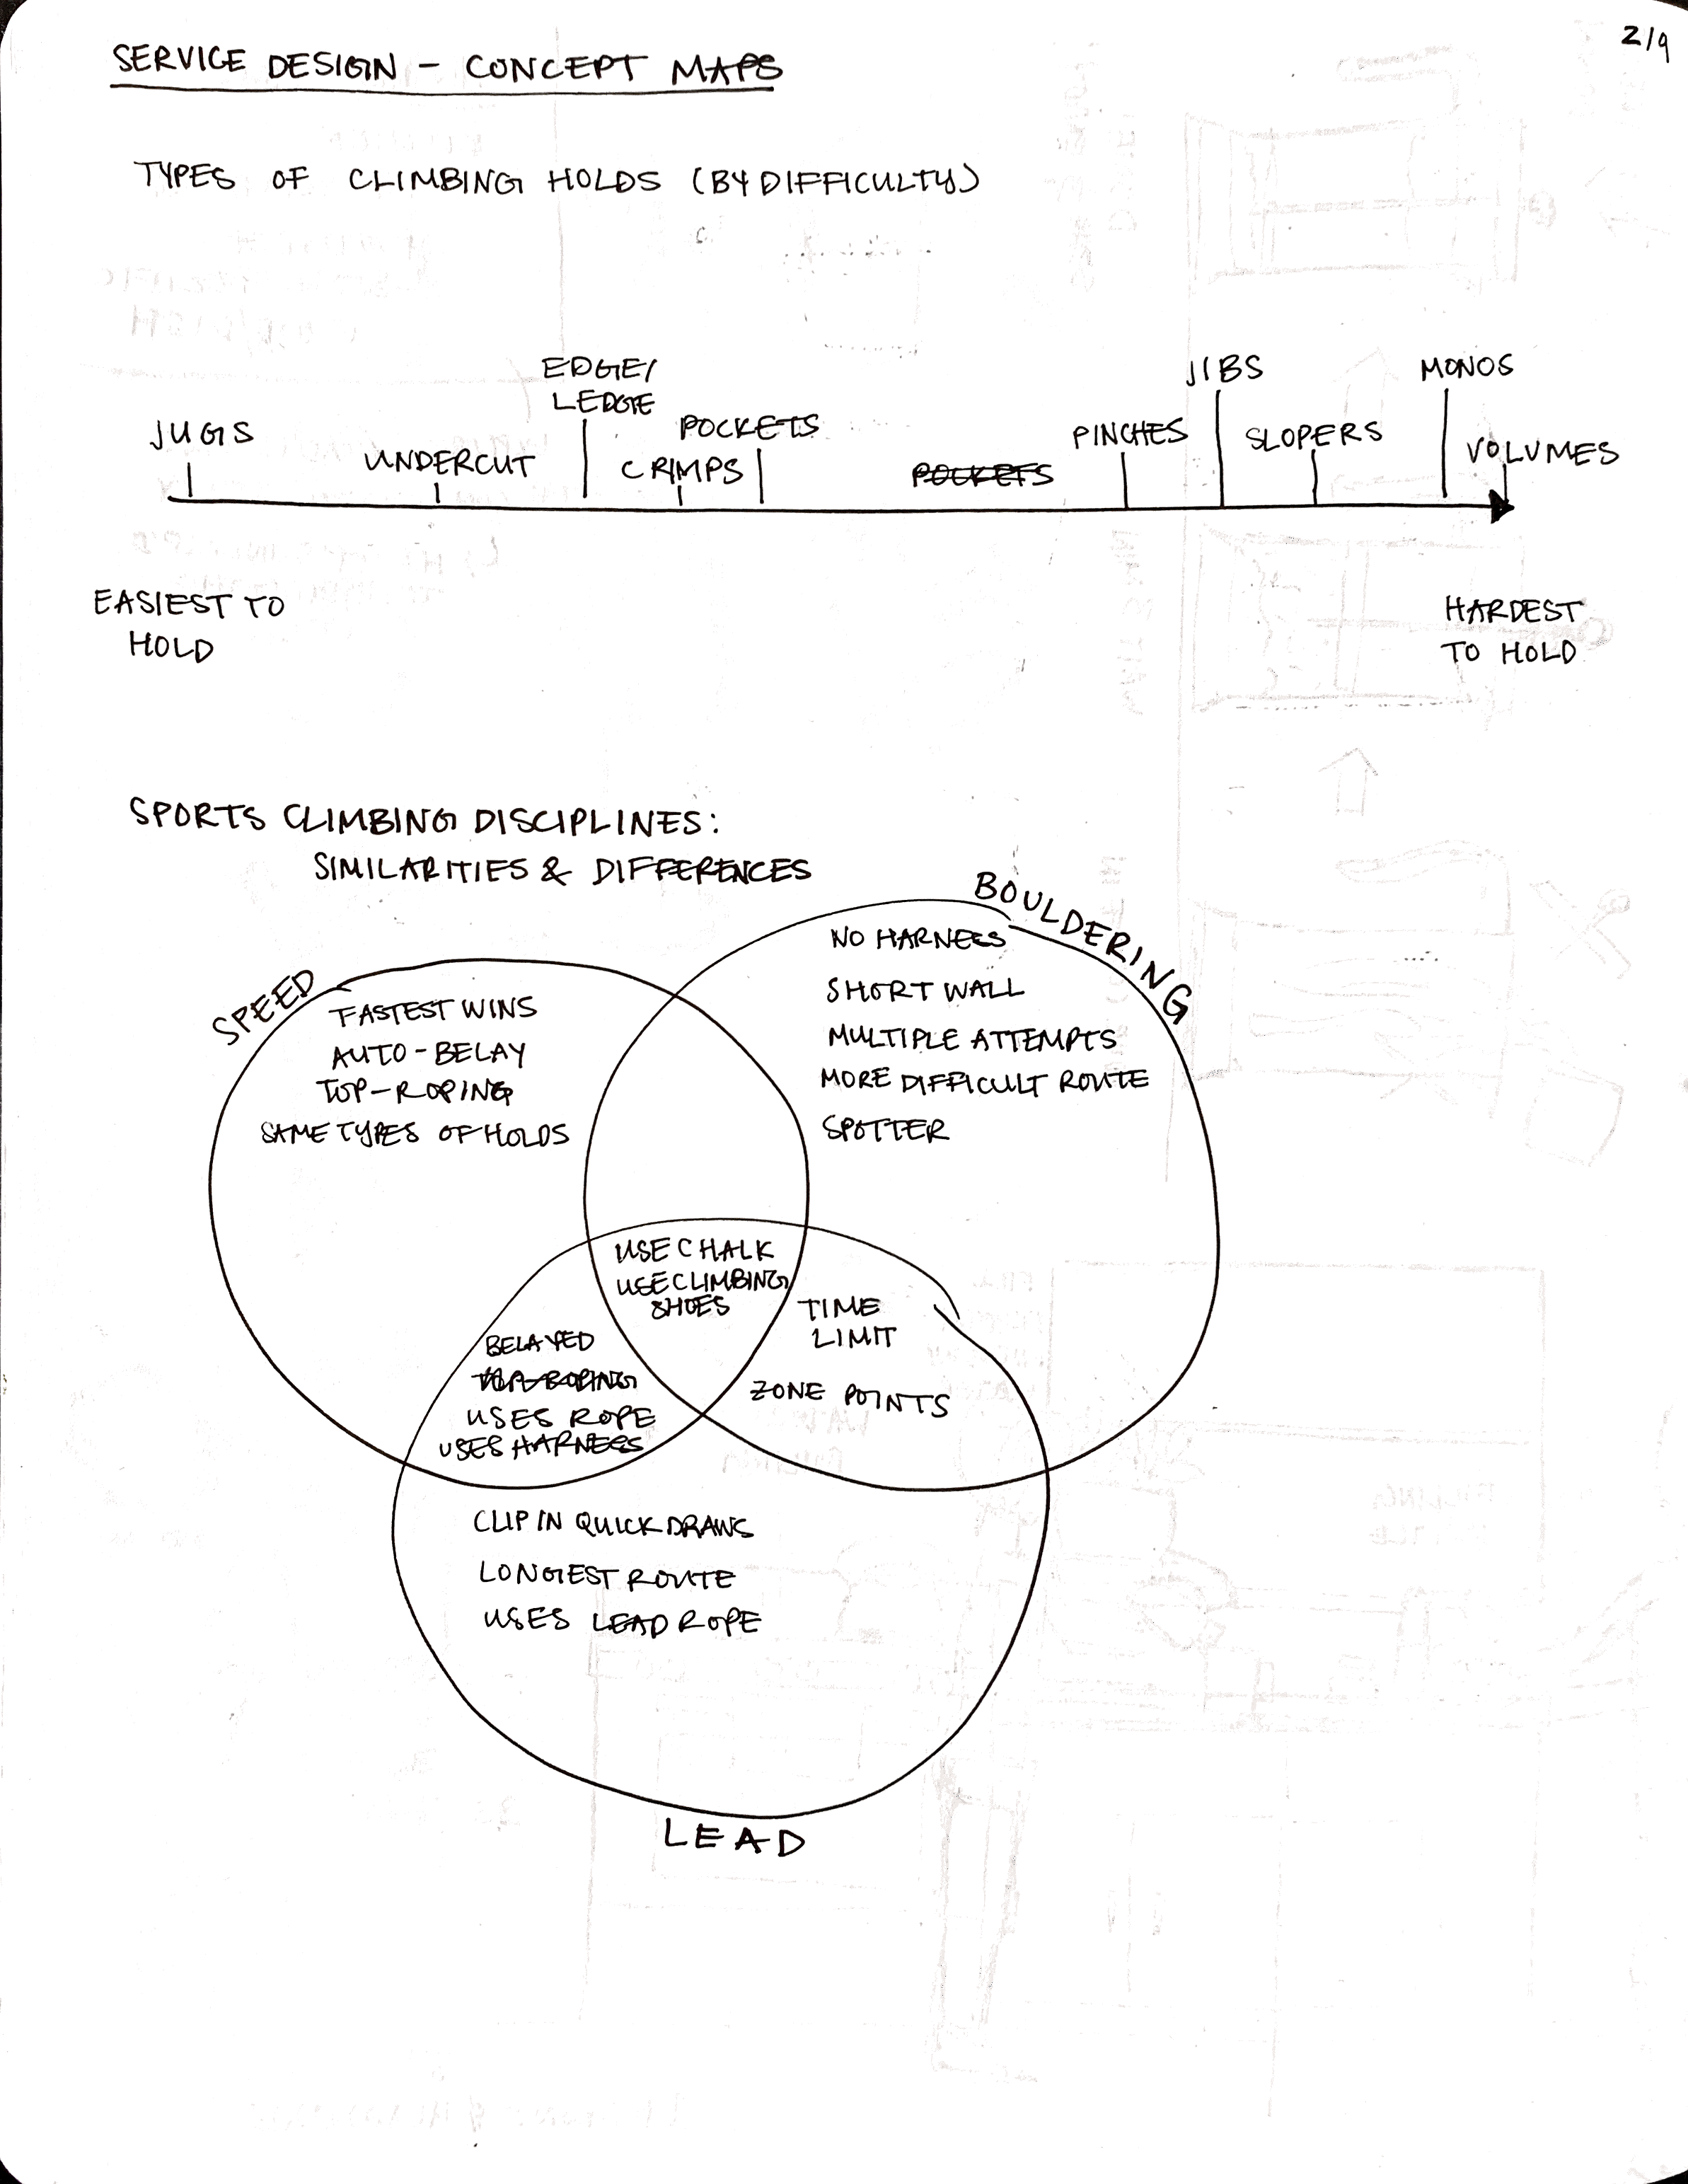 2/9
SERVICE DESIGN – CONCEPT MAPS
TYPES OF CLIMBING HOLDS (BY DIFFICULTY)
JUGS
UNDERCUT
EDGE/
LEDGE
CRIMPS
POCKETS
POCKETS
PINCHES
JIBS
SLOPERS
MONOS
VOLUMES
EASIEST TO
HOLD
HARDEST
TO HOLD
SPORTS CLIMBING DISCIPLINES:
SIMILARITIES & DIFFERENCES
SPEED
FASTEST WINS
AUTO-BELAY
TOP-ROPING
SAME TYPES OF HOLDS
BOULDERING
NO HARNESS
SHORT WALL
MULTIPLE ATTEMPTS
MORE DIFFICULT ROUTE
SPOTTER
USE CHALK
USE CLIMBING
SHOES
TIME
LIMIT
ZONE POINTS
BELAYED
TOP-ROPING
USES ROPE
USES HARNESS
CLIP IN QUICKDRAWS
LONGEST ROUTE
USES LEAD ROPE
LEAD